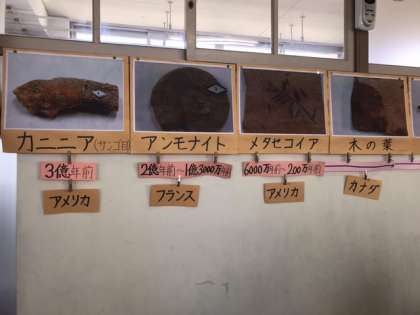 カニニア(サンゴ目)
アンモナイト
メタセコイア
木の葉
3億年前
2億年前〜1億3000万年前
6000万年前〜200万年前
アメリカ
フランス
アメリカ
カナダ